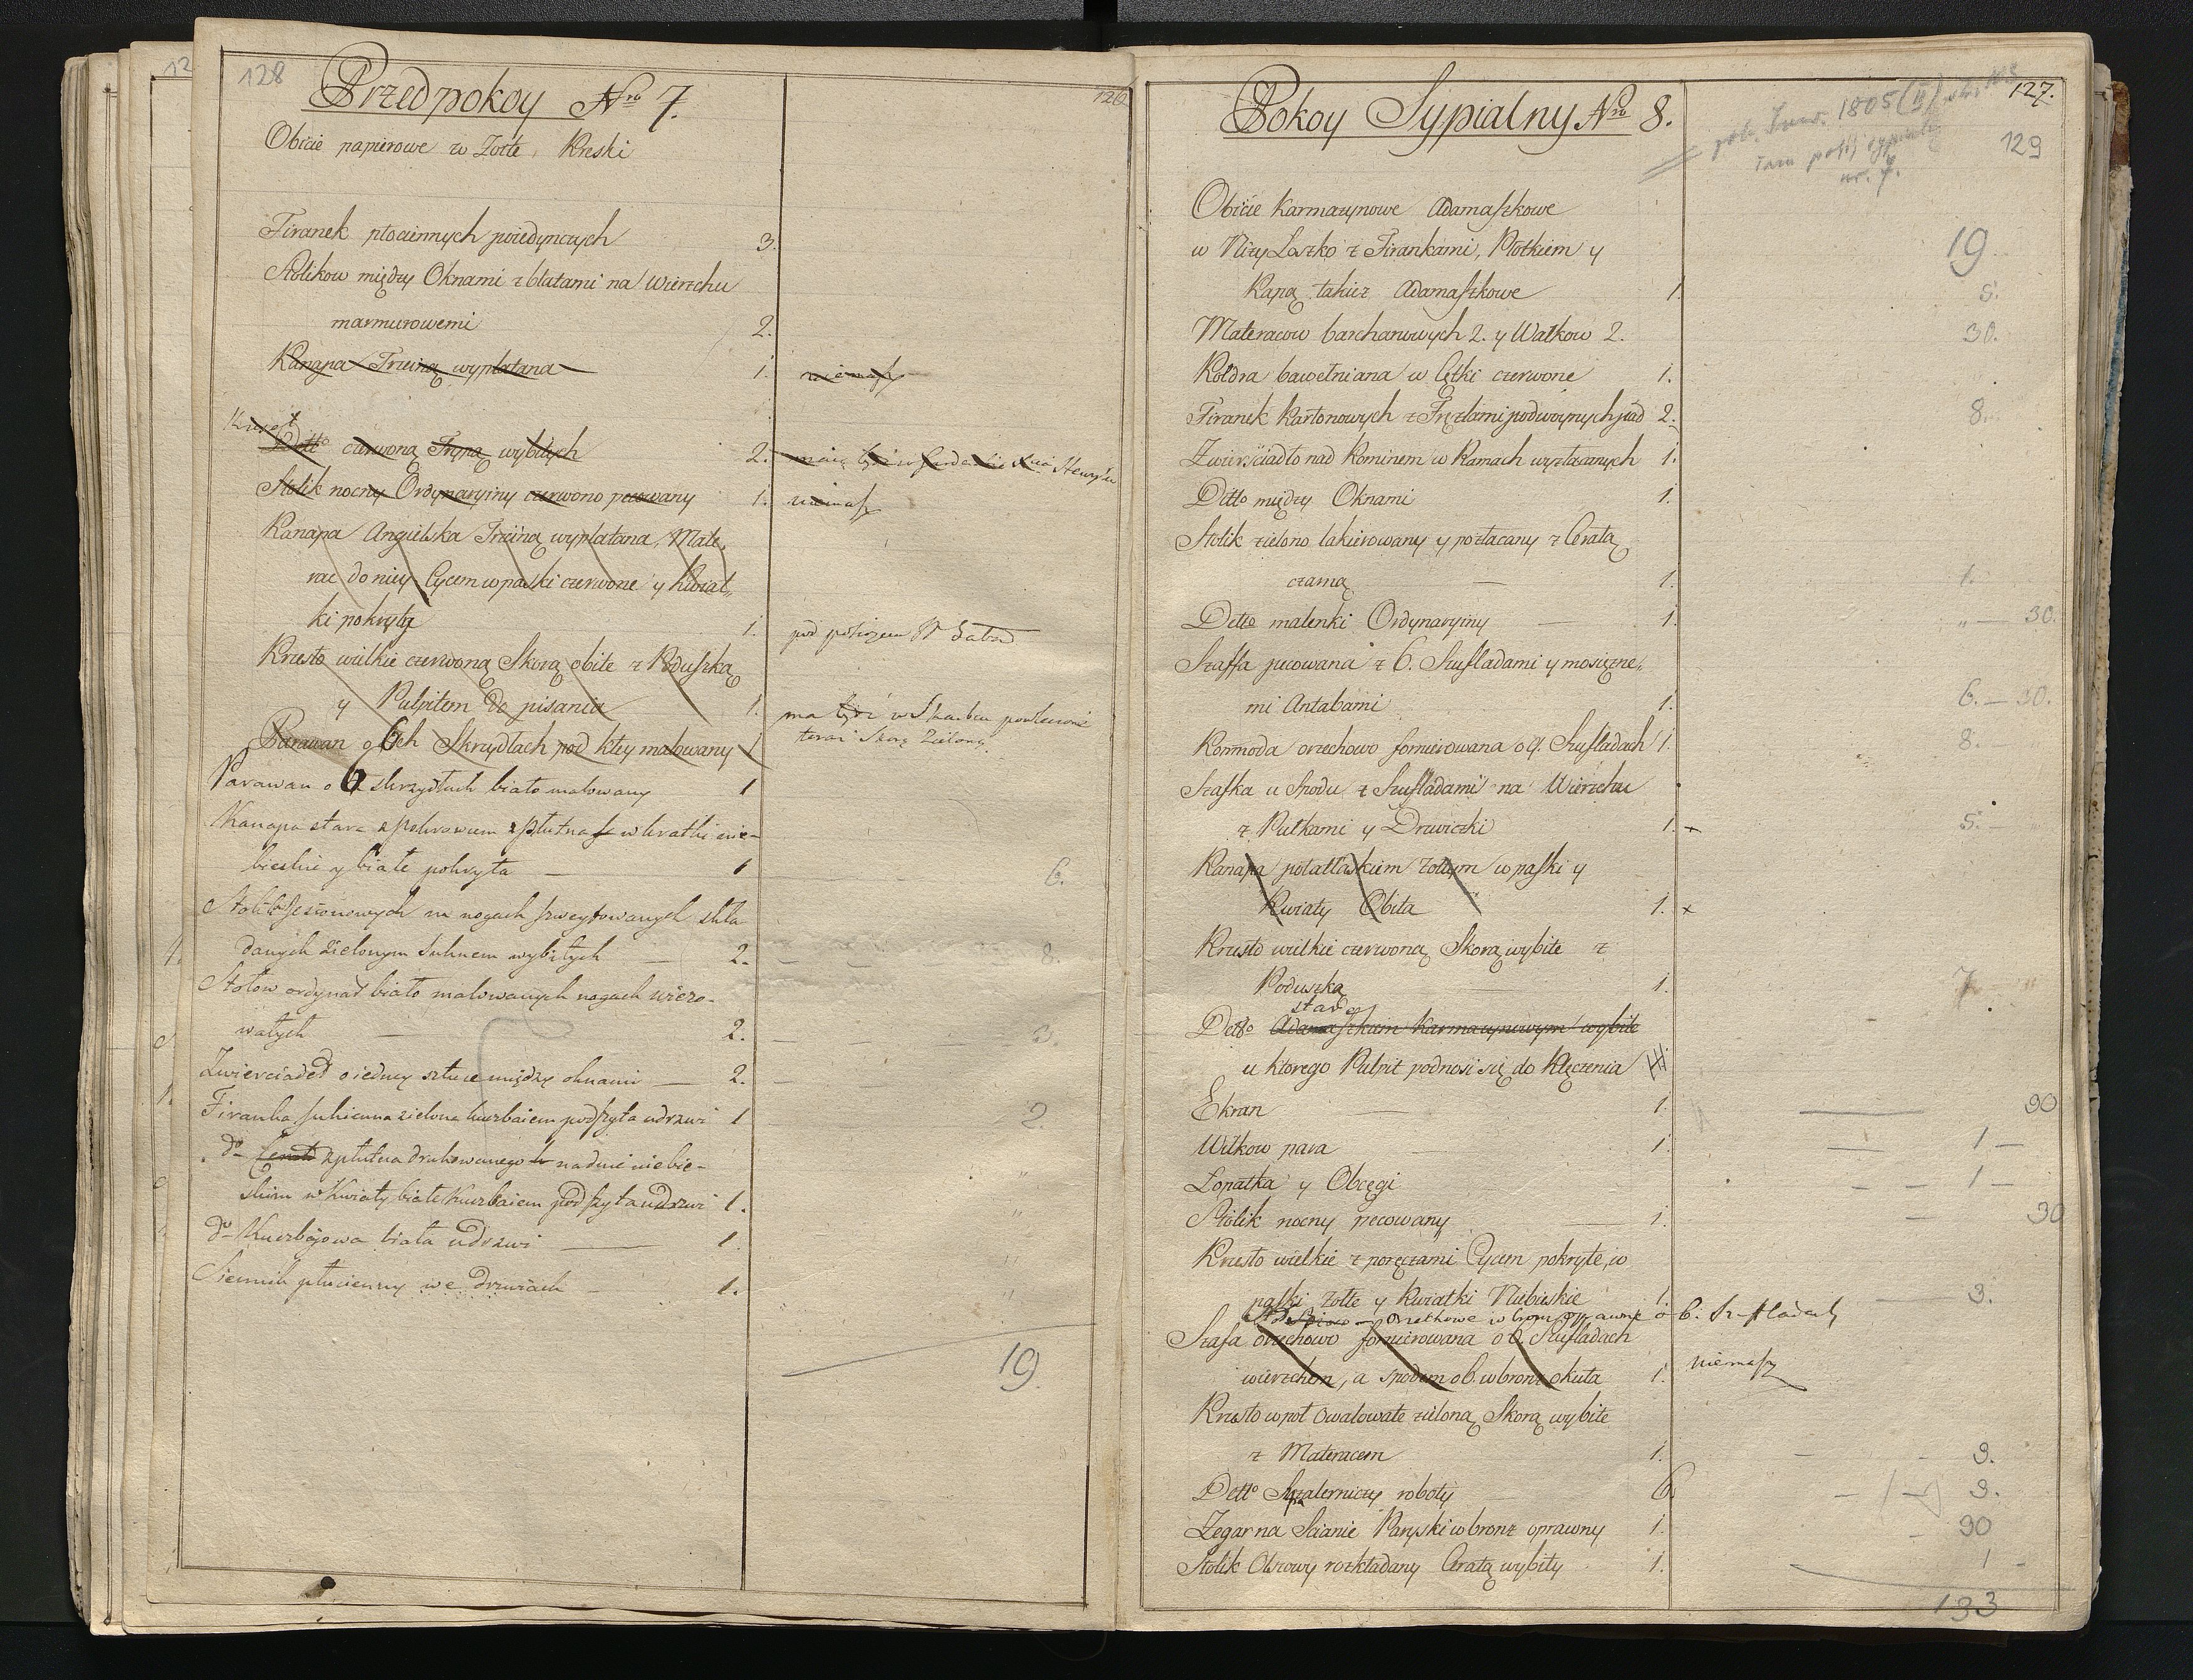 128
126
Przedpokoy Nro 7.
Obicie papierowe w Zołte Kreski
Firanek płociennych poiedynczych 3.
Stolikow między Oknami z blatami na wierzchu
marmurowemi 2.
Kanapa Trzciną wyplatana 1. niemasz
Krzeseł
Detto czerwoną Trypą wybitych 2.
Stolik nocny Ordynaryiny czerwono pecowany 1. niemasz
Kanapa Angielska Trzciną wyplatana, Mate,
rac do niey Cycem w paski czerwone y Kwiat,,
ki pokryty 1.
Krzesło wielkie czerwoną Skorą obite z Poduszką
y Pulpitem do pisania 1. ma być w Skarbcu powleczone
teraz Skorą Zieloną.
Parawan o 6ch Skrzydłach pod kley malowany 1
Parawan o 6 skrzydłach biało malowany 1
Kanapa stara z pokrowcem z płutna w kratki nie-
bieskie y białe pokryta — 1 6.
Stolik Jesionowych na nogach szweyfowanych skła
danych zielonym Suknem wybitych — 2. 8.
Stołow ordynar biało malowanych nogach rżczo-
watych — 2. 3.
Zwierciadeł o iedney sztuce między oknami — 2.
Firanka sukienna zielona kuczbaiem podszyta u drzwi 1 2.
do z płutna drukowanego na dnie niebie-
skim w kwiaty białe Kuczbaiem podszyta u drzwi 1.
do Kuczbajowa biała u drzwi — 1.
Siennik płucienny we drzwiach — 1.
19.
127.
129
Pokoy Sypialny Nro 8.
Inw. 1805 (II)
tam pokój sypialny
nr. 7.
Obicie Karmazynowe Adamaszkowe
w Niży Łoszko z Firankami, Płotkiem y 19
Kapą takiez Adamaszkowe 1. 5.
Materacow barchanowych 2. y Wałkow 2. 30.
Kołdra bawełniana w Cętki czerwone 1.
Firanek Kartonowych z Frezlami podwoynych par 2. 8.
Zwierściadło nad Kominem w Ramach wyzłacanych 1.
Detto między Oknami 1.
Stolik zielono lakierowany y pozłacany z Ceratą
czarną — 1. 1.
Detto malenki Ordynaryiny — 1. „ — 30.
Szaffa pecowana z 6. Szufladami y mosięzne,,
mi Antabami 1. 6. — 30.
Kommoda orzechowo fornierowana o 4. Szufladach 1. 8.
Szafka u Spodu z Szufladami na Wierzchu
z Pułkami y Drzwiczki 1. + 5. — „
Kanapa połatłaskiem zołtym w paski y
Kwiaty Obita 1. +
Krzesło wielkie czerwoną Skorą wybite z
Poduszką 1. 7.
Detto Adamaszkiem Karmazynowym wybite
u ktorego Pulpit podnosi się do Klęczenia
Ekran 1. 90
Wilkow para 1. 1 —
Łopatka y Obcęgi 1 —
Stolik nocny pecowany — 1. 30
Krzesło wielkie z poręczami Cycem pokryte, w
paski zołte y Kwiatki Niebieskie 1. 3.
orzechowe w bronz oprawne o 6. Szufladach
Szafa orzechowo fornierowana o 6. Szufladach
wierzchem, a spodem o 6. w bronz okuta 1. niemasz
Krzesło w poł Owalowate zieloną Skorą wybite
z Materacem 1. 9.
Detto Szpalerniczy roboty 6. 9.
Zegar na Scianie Paryski w bronz oprawny 1. 90
Stolik Olszowy rozkładany Ceratą wybity 1. 1 -
133